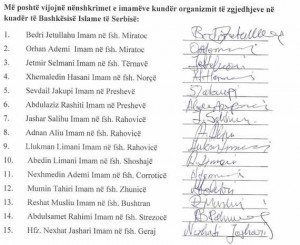 Më poshtë vijojnë nënshkrimet e imamëve kundër organizmit të zgjedhjeve në
kuadër të Bashkësisë Islame të Serbisë:
1. Bedri Jetullahu Imam në fsh. Miratoc
2. Orhan Ademi Imam në fsh. Miratoc
3. Jetmir Selmani Imam në fsh. Tërnavë
4. Xhemaledin Hasani Imam në fsh. Norçë
5. Sevdail Jakupi Imam në fsh. Preshevë
6. Abdulaziz Rashiti Imam në Preshevë
7. Jashar Salihu Imam në fsh. Rahovicë
8. Adnan Aliu Imam në fsh. Rahovicë
9. Llukman Limani Imam në fsh. Rahovicë
10. Abedin Limani Imam në fsh. Shoshajë
11. Nexhmedin Ademi Imam në fsh. Corroticë
12. Mumin Tahiri Imam në fsh. Zhunicë
13. Reshat Musliu Imam në fsh. Bushtran
14. Abdulsamet Rahimi Imam në fsh. Strezocë
15. Hfz. Nexhat Jashari Imam në fsh. Geraj